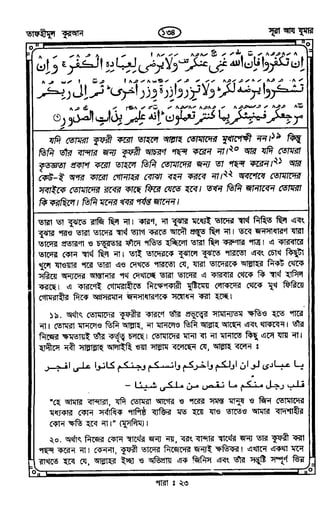 তাফহীমুল কুরআন
১৩৪
সূরা আয যুমার
إِنْ تَكْفُرُوا فَإِنَّ اللَّهَ غَنِيٌّ عَنْكُمْ وَلَا يَرْضَى لِعِبَادِهِ الْكُفْرَ وَإِنْ
تَشْكُرُوا يَرْضَهُ لَكُمْ وَلَا تَزِرُ وَازِرَةٌ وِزْرَ أُخْرَى ثُمَّ إِلَى رَبِّكُمْ
مَرْجِعُكُمْ فَيُنَبِّئُكُمْ بِمَا كُنْتُمْ تَعْمَلُونَ إِنَّهُ عَلِيمٌ بِذَاتِ الصُّدُورِ ۝
যদি তোমরা কুফরী করো তাহলে আল্লাহ তোমাদের মুখাপেক্ষী নন।১৯ কিন্তু
তিনি তাঁর বান্দার জন্য কুফরী আচরণ পছন্দ করেন না।২০ আর যদি তোমরা
কৃতজ্ঞতা প্রকাশ করো তাহলে তিনি তোমাদের জন্য তা পছন্দ করেন।২১ আর
কেউ-ই অপর কারো গোনাহের বোঝা বহন করবে না।২২ অবশেষে তোমাদের
সবাইকে তোমাদের রবের কাছে ফিরে যেতে হবে। তখন তিনি জানাবেন তোমরা
কি করছিলে। তিনি মনের খবর পর্যন্ত জানেন।
তারা তা বুঝতে রাজি ছিল না। কারণ, না বুঝার মধ্যেই তাদের স্বার্থ নিহিত ছিল এবং
বুঝার পরও তারা তাদের স্বার্থ ত্যাগ করতে আদৌ প্রস্তুত ছিল না। তবে জনসাধারণ যারা
তাদের প্রতারণা ও চতুরতার ফাঁদে পতিত হচ্ছিলো তারা ছিল করুণার পাত্র। এ কারবারে
তাদের কোন স্বার্থ ছিল না। তাই তাদেরকে বুঝালে বুঝতে পারতো এবং চোখ কিছুটা
খুলে যাওয়ার পরে তারা এও দেখতে পারতো যে, যারা তাদেরকে আল্লাহর নিকট থেকে
সরিয়ে অন্যদের আস্তানার পথ দেখাচ্ছে তারা তাদের এ কারবার থেকে কি স্বার্থ হাসিল
করছে। এ কারণেই গোমরাহীতে নিক্ষেপকারী মুষ্টিমেয় লোকদের থেকে মুখ ফিরিয়ে
গোমরাহীর দিকে অগ্রসরমান জনসাধারণকে সম্বোধন করা হচ্ছে।
১৯. অর্থাৎ তোমাদের কুফরীর কারণে তাঁর প্রভুত্বের সামান্যতম ক্ষতিও হতে পারে
না। তোমরা মানলেও তিনি আল্লাহ, না মানলেও তিনি আল্লাহ আছেন এবং থাকবেন। তাঁর
নিজের ক্ষমতায়ই তাঁর কর্তৃত্ব চলছে। তোমাদের মানা বা না মানাতে কিছু এসে যায় না।
হাদীসে নবী সাল্লাল্লাহু আলাইহি ওয়া সাল্লাম বলেছেন যে, আল্লাহ বলেন :
يا عبادى لو ان اولكم واخركم وانسكم وجنكم كانوا على افجر
قلب رجل منكم ما نقص من ملكى شيئا -
"হে আমার বান্দারা, যদি তোমরা আগের ও পরের সমস্ত মানুষ ও জিন তোমাদের
মধ্যকার কোন সর্বাধিক পাপিষ্ঠ ব্যক্তির মত হয়ে যাও তাতেও আমার বাদশাহীর
কোন ক্ষতি হবে না।" (মুসলিম)।
২০. অর্থাৎ নিজের কোন স্বার্থের জন্য নয়, বরং বান্দার স্বার্থের জন্য তার কুফরী করা
পছন্দ করেন না। কেননা, কুফরী তাদের নিজেদের জন্যই ক্ষতিকর। এখানে একথা মনে
রাখতে হবে যে, আল্লাহর ইচ্ছা ও অভিপ্রায় এক জিনিস এবং তাঁর সন্তুষ্টি সম্পূর্ণ ভিন্ন
পারা : ২৩